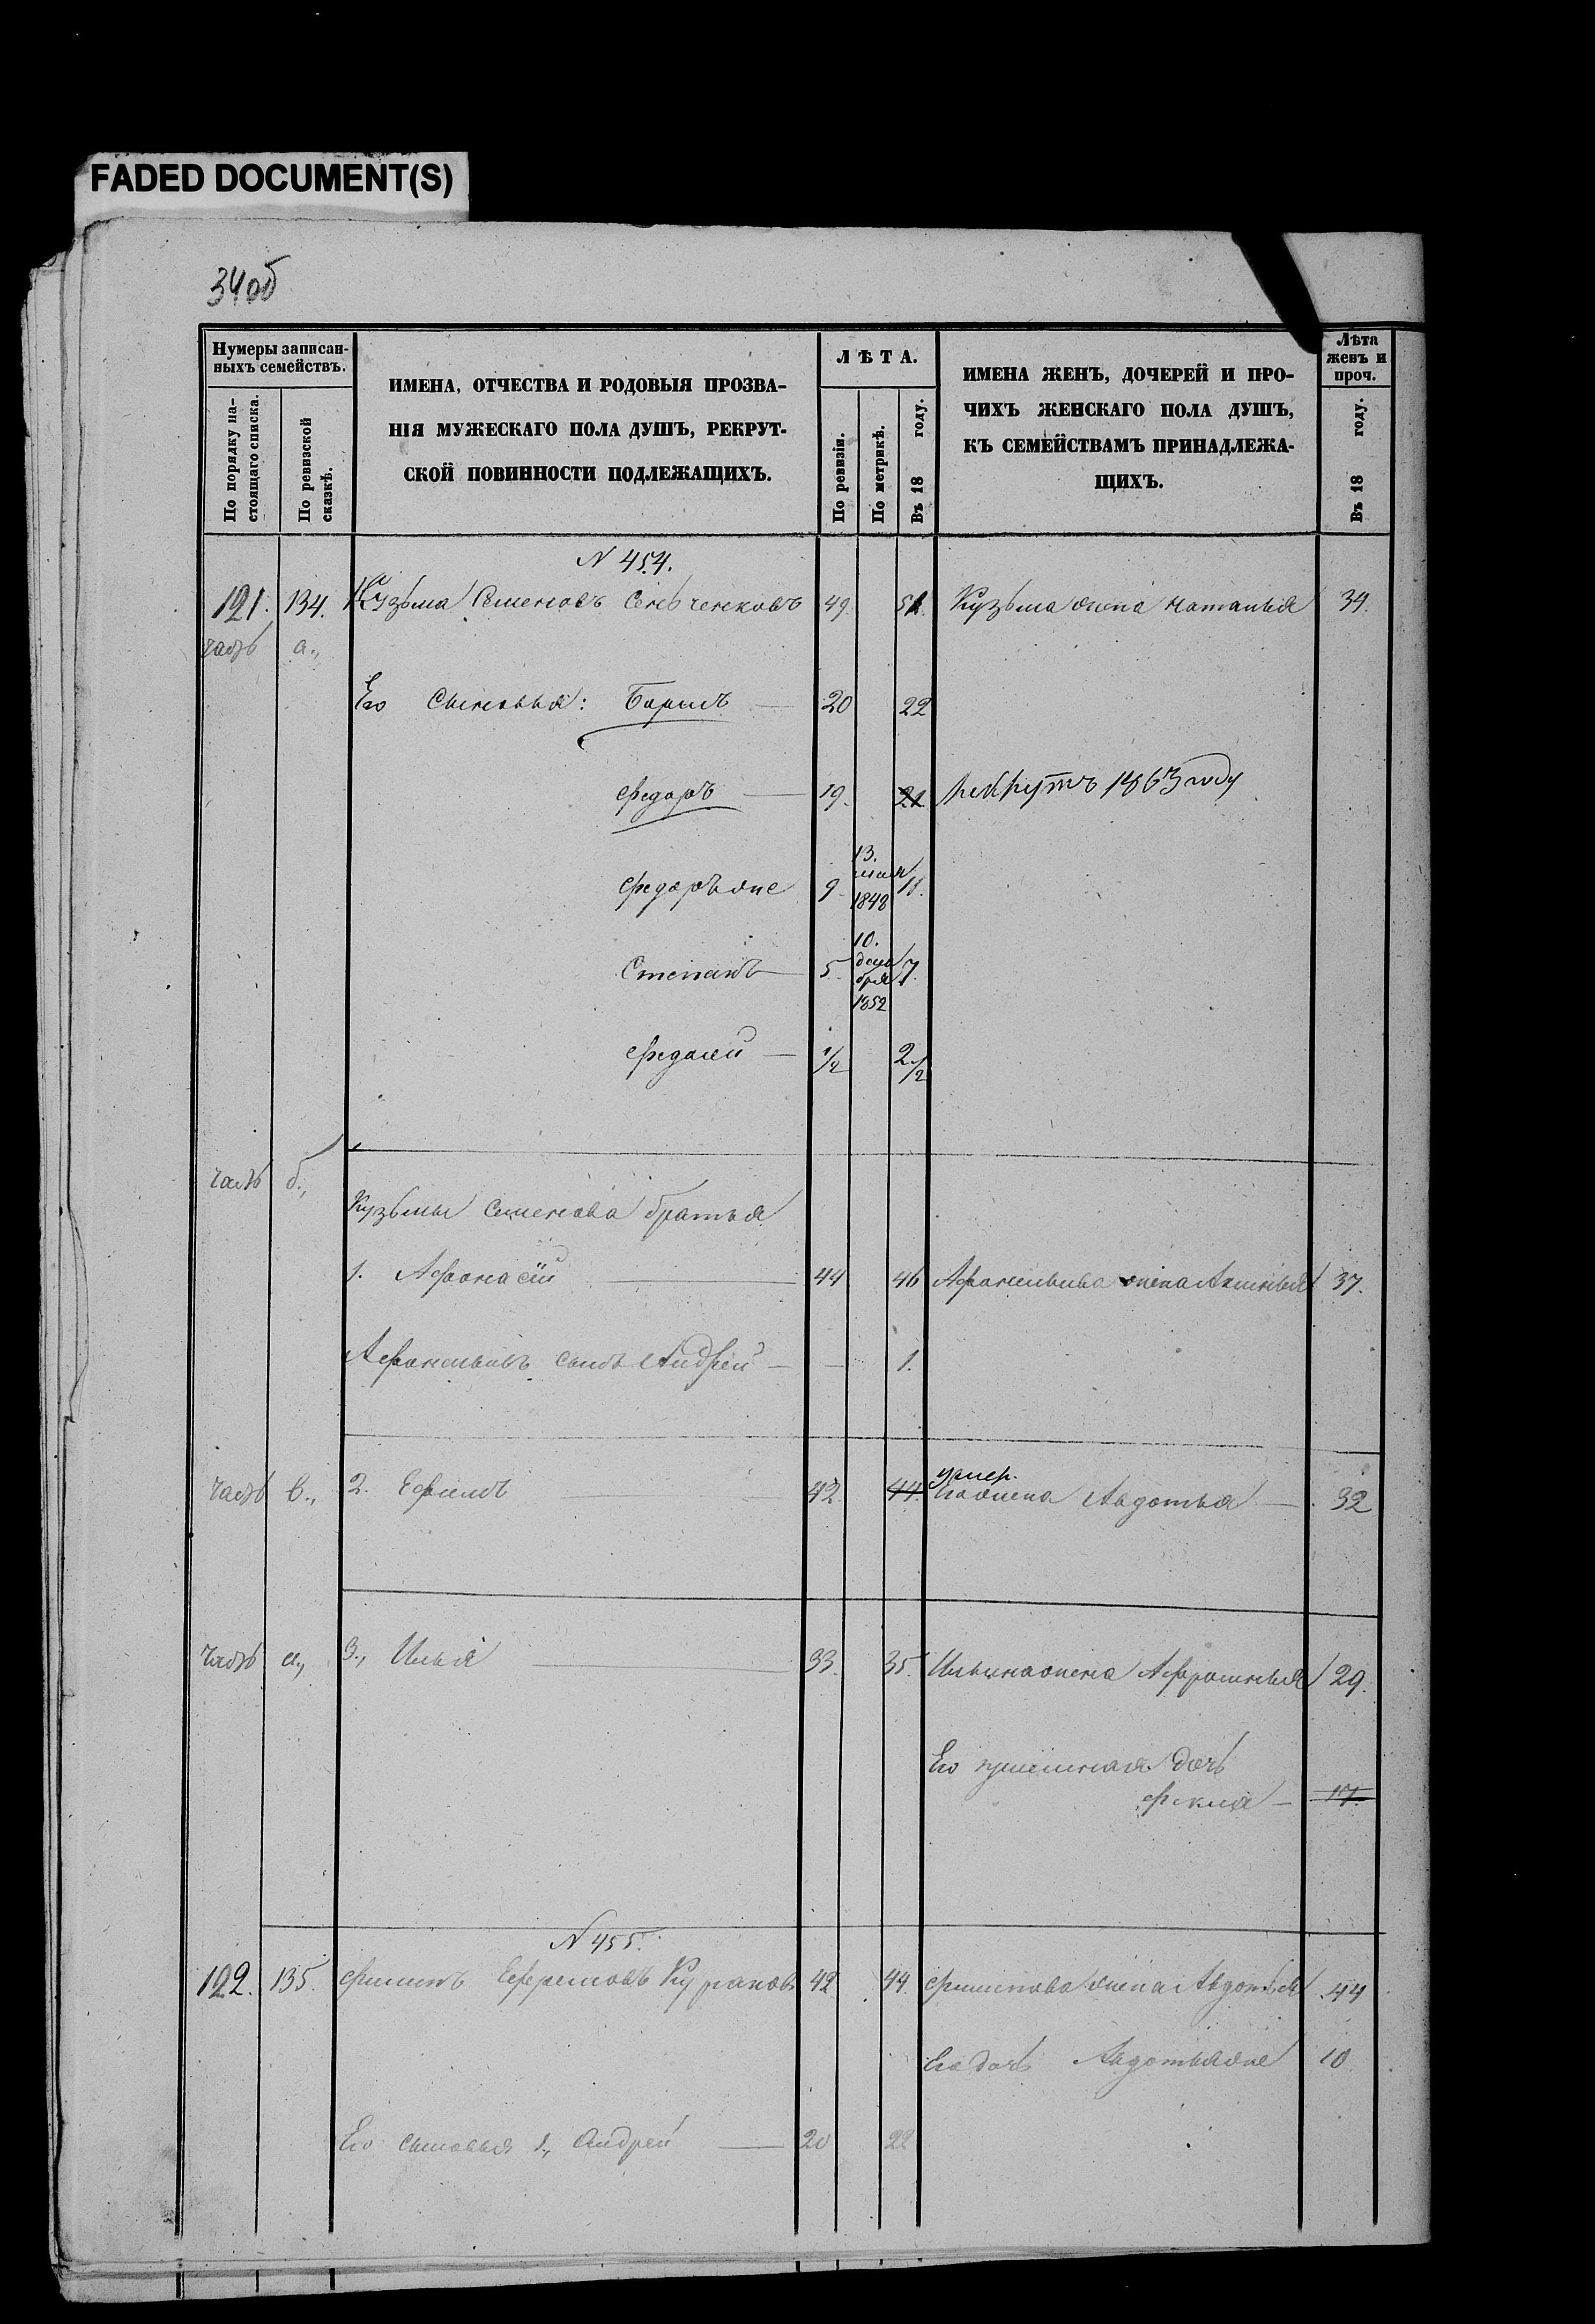 FADED DOCUMENT(S)
34об
Нумеры записан-
ныхъ семействъ.
По порядку на-
стоящаго списка.
По ревизской
сказкѣ.
ИМЕНА, ОТЧЕСТВА И РОДОВЫЯ ПРОЗВА-
НІЯ МУЖЕСКАГО ПОЛА ДУШЪ, РЕКРУТ-
СКОЙ ПОВИННОСТИ ПОДЛЕЖАЩИХЪ.
ЛѢТА.
По ревизіи.
По метрикѣ.
Въ 18 году.
ИМЕНА ЖЕНЪ, ДОЧЕРЕЙ И ПРО-
ЧИХЪ ЖЕНСКАГО ПОЛА ДУШЪ,
КЪ СЕМЕЙСТВАМЪ ПРИНАДЛЕЖА-
ЩИХЪ.
Лѣта
женъ и
проч.
Въ 18 году.
N 454.
121. 134. Кузьма Семеновъ 49. 51. Кузьма жена Наталья 34.
часть а.,
Его Сыновья: Борисъ 20 22
Федоръ 19. 21 рекрутъ 1863 году
Федоръ же 9 13. мая 1848 11.
Степанъ 5 10. декабря 1852 7.
1/2 2 1/2
часть б.,
Кузьмы Семенова братья
1. Афонасій 44 46 жена 37.
сынъ Андрей — 1.
умер.
часть в., 2. Ефимъ 42. 44. Его жена Авдотья 32
часть 3., Илья 33. 35. Ильина жена Афросинья 29.
Его дочь
Фекла 17.
N 455.
122. 135. Филипъ Ефремовъ 42 44. Филипова жена Авдотья 44
Его дочь Авдотья же 10
Его сыновья 1., Андрей 20 22